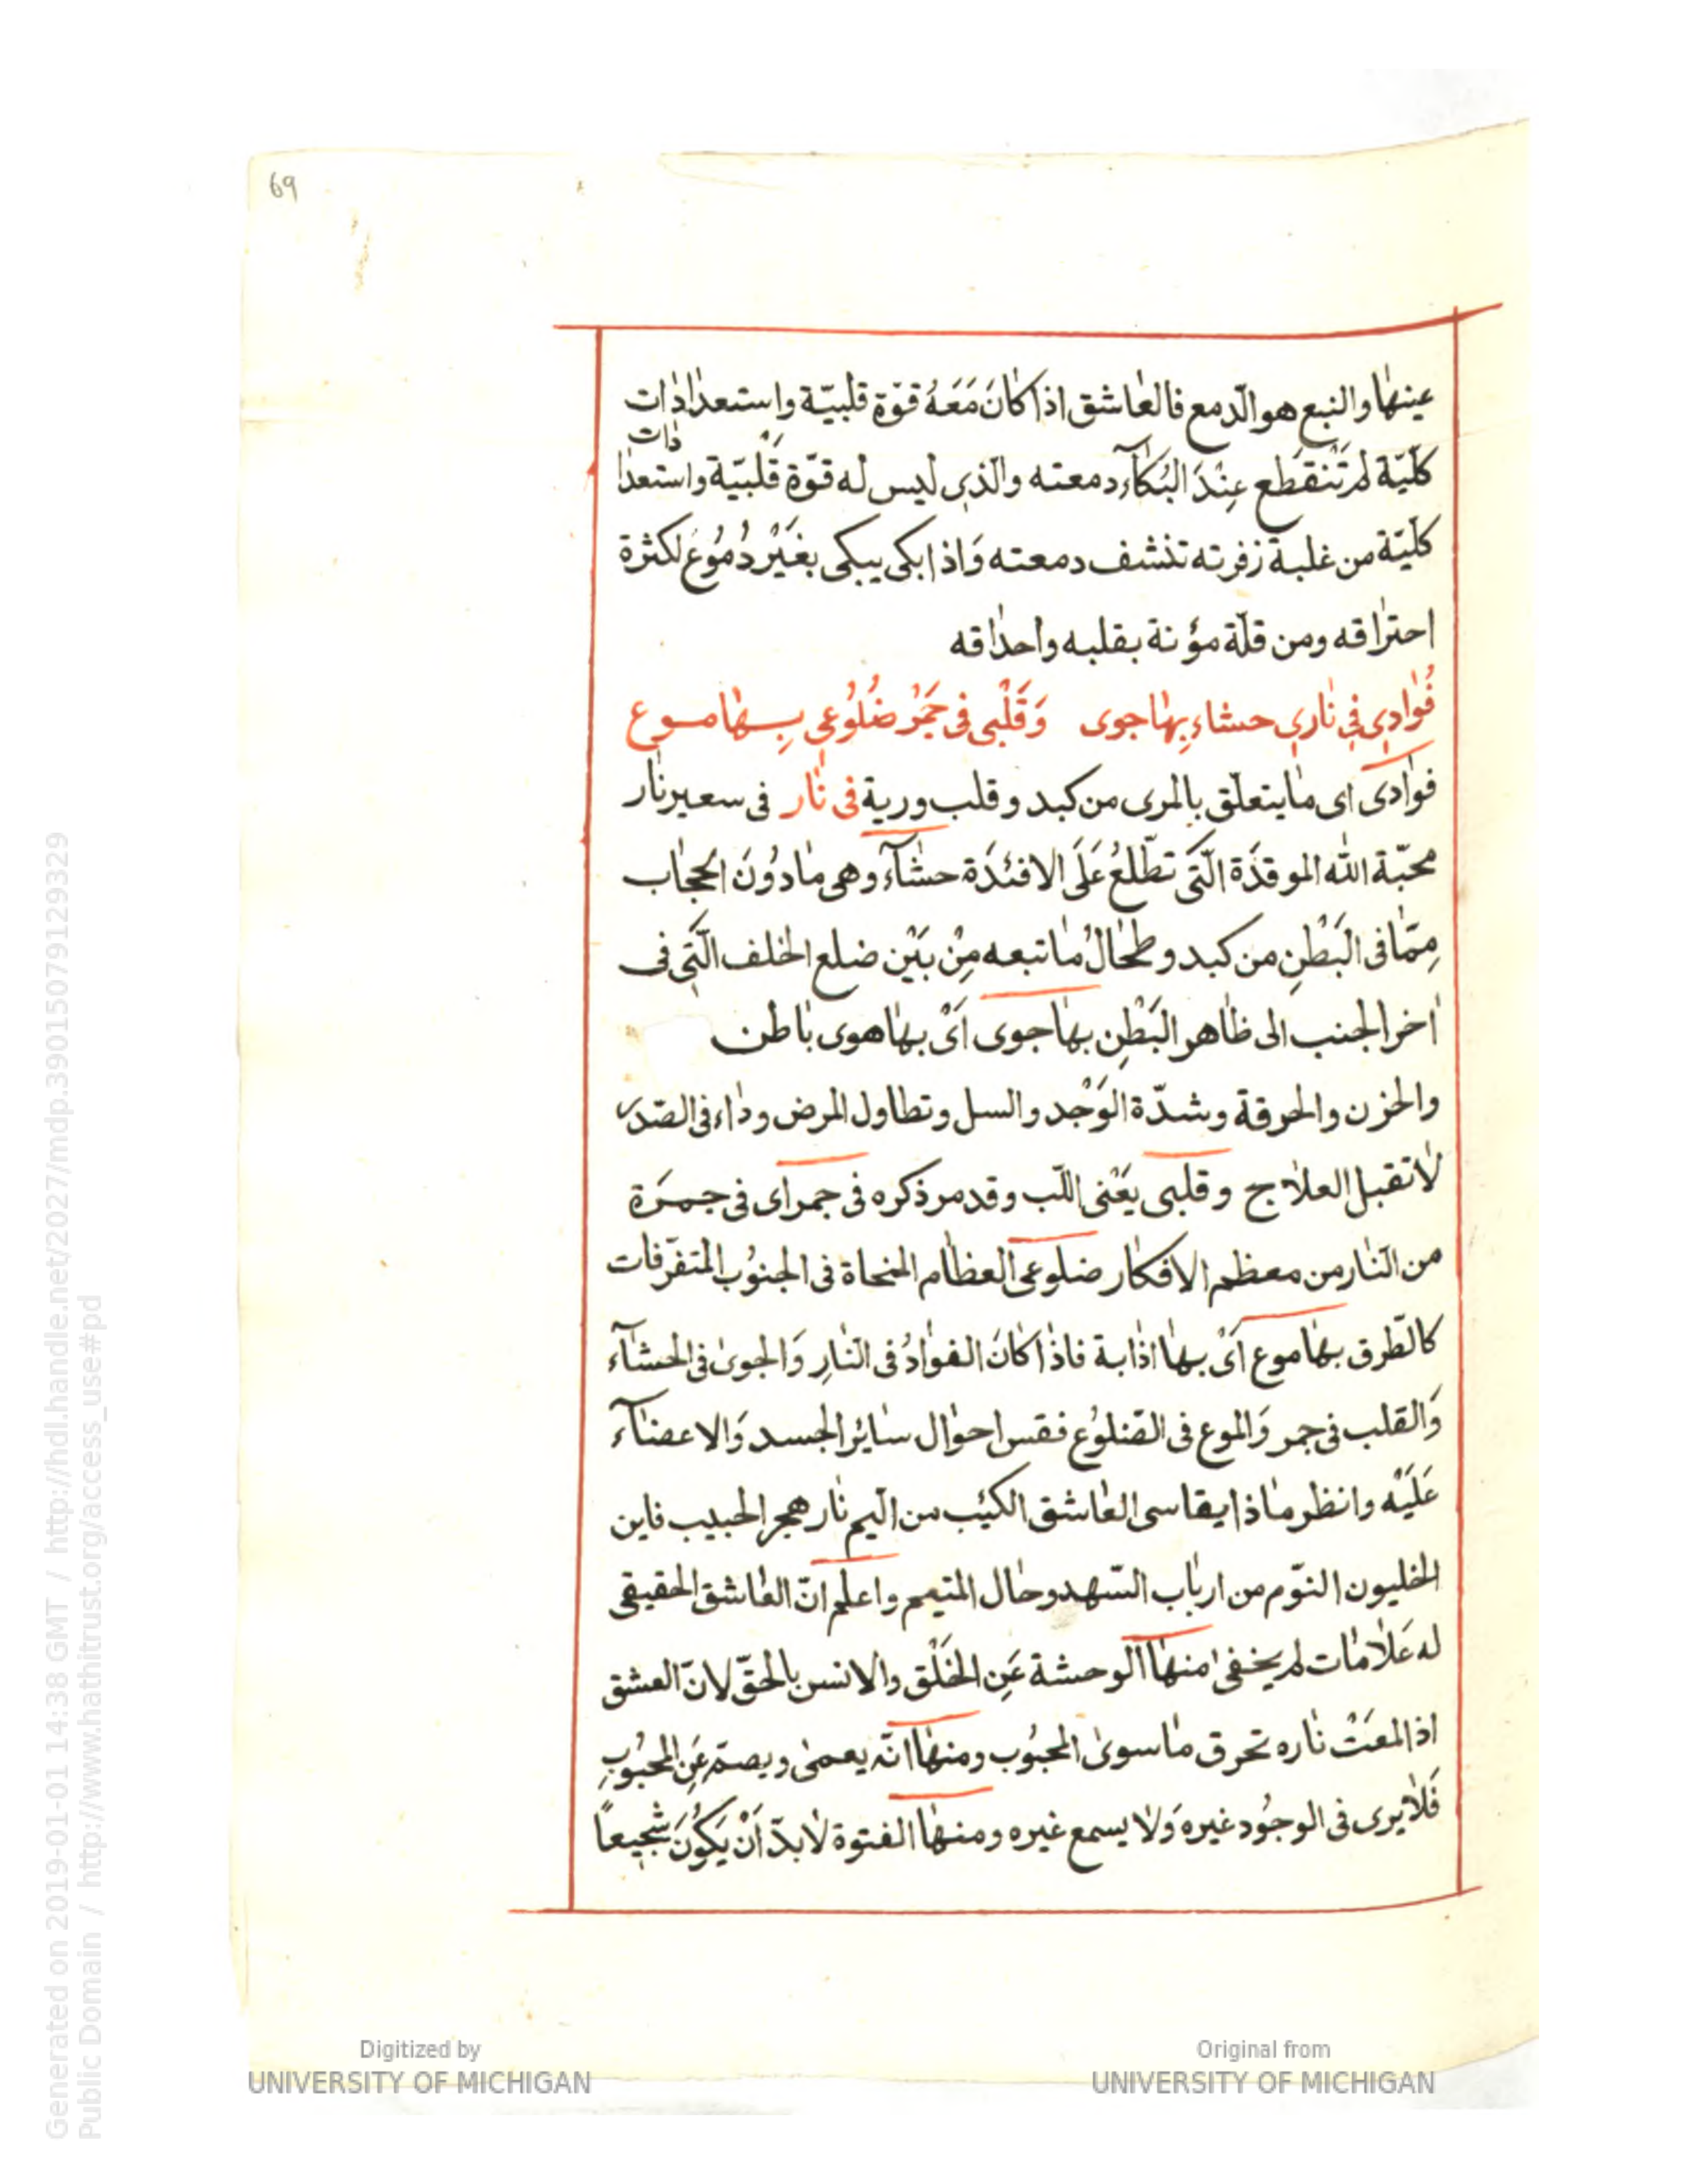 69
عينها والنبع هو الدّمع فالعاشق اذا كانَ مَعَهُ قوّة قلبيّة واستعدادات
كلّيّة لم تَنْقَطع عِنْدَ البُكآء دمعته والذي ليس له قوّة قَلْبيّة واستعدادات
كلّيّة من غلبة زفرته تنشف دمعته وَاذا بكى يبكى بغَيْر دُمُوع لكثرة
احتراقه ومن قلّة مؤنة بقلبه واحداقه
فُوادِي فِي نارِي حشاء بِها جوى وَقَلْبي في جَمْر ضُلُوعي بِها موع
فوادى اى ما يتعلّق بالمرى من كبد وقلب ورية فى نار فى سعير نار
محبّة الله الموقدَة الّتى تطّلعُ عَلَى الافئدَة حشآء وهى ما دُونَ الحجاب
مِمّا فى البَطْنِ من كبد وطحالُ ما تبعه مِنْ بَيْن ضلع الخلف الّتي فى
اخر الجنب الى ظاهر البَطْنِ بها جوى اَىْ بها هوى باطن
والحزن والحرقة وشدّة الوَجْد والسل وتطاول المرض وداء فى الصّدر
لا تقبل العلاج وقلبى يعْنى اللّب وقد مر ذكره فى جمر اى فى جمرَة
من النّار من معظم الافكار ضلوعى العظام المنحاة فى الجنوُب المتفرّقات
كالطّرق بها موع اَىْ بها اذابة فاذا كانَ الفوادُ فى النّارِ وَالجوى فى الحشآء
وَالقلب فى جمر وَالموع فى الضّلوُع فقس احوال سائر الجسد وَالاعضآء
عَلَيْه وانظر ماذا يقاسى العاشق الكئيب من اليم نار هجر الحبيب فاين
الخليون النوّم من ارباب السّهد وحال المتيم واعلم انّ العاشق الحقيقى
له عَلامات لم يخفى منها الوحشة عَنِ الخَلْق والانس بالحقّ لانّ العشق
اذا لمعَتْ ناره تحرق ما سوى المحبُوب ومنها انّه يعمى ويصمّ عَنِ المحبُوبِ
فَلا يرى فى الوجُود غيره وَلا يسمع غيره ومنها الفتوة لا بدّ اَنْ يَكُونَ شجيعاً
Digitized by
UNIVERSITY OF MICHIGAN
Original from
UNIVERSITY OF MICHIGAN
Generated on 2019-01-01 14:38 GMT / http://hdl.handle.net/2027/mdp.39015079129329
Public Domain / http://www.hathitrust.org/access_use#pd